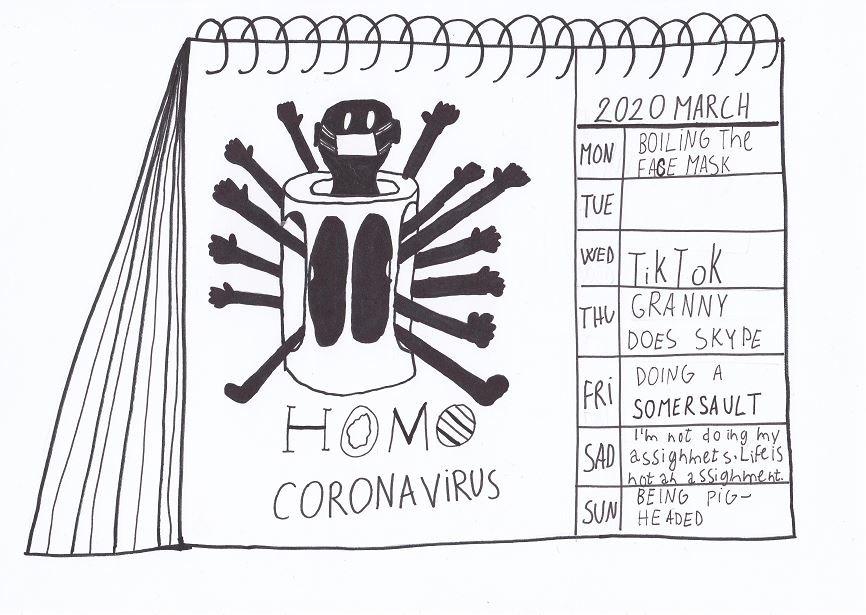 HOMO
CORONAVIRUS
2020 MARCH
MON
BOILING The
FACE MASK
TUE
WED
TikTok
THU
GRANNY
DOES SKYPE
FRI
DOING A
SOMERSAULT
SAD
I'm not doing my
assighmets. Life is
not ah assighment.
SUN
BEING PIG-
HEADED